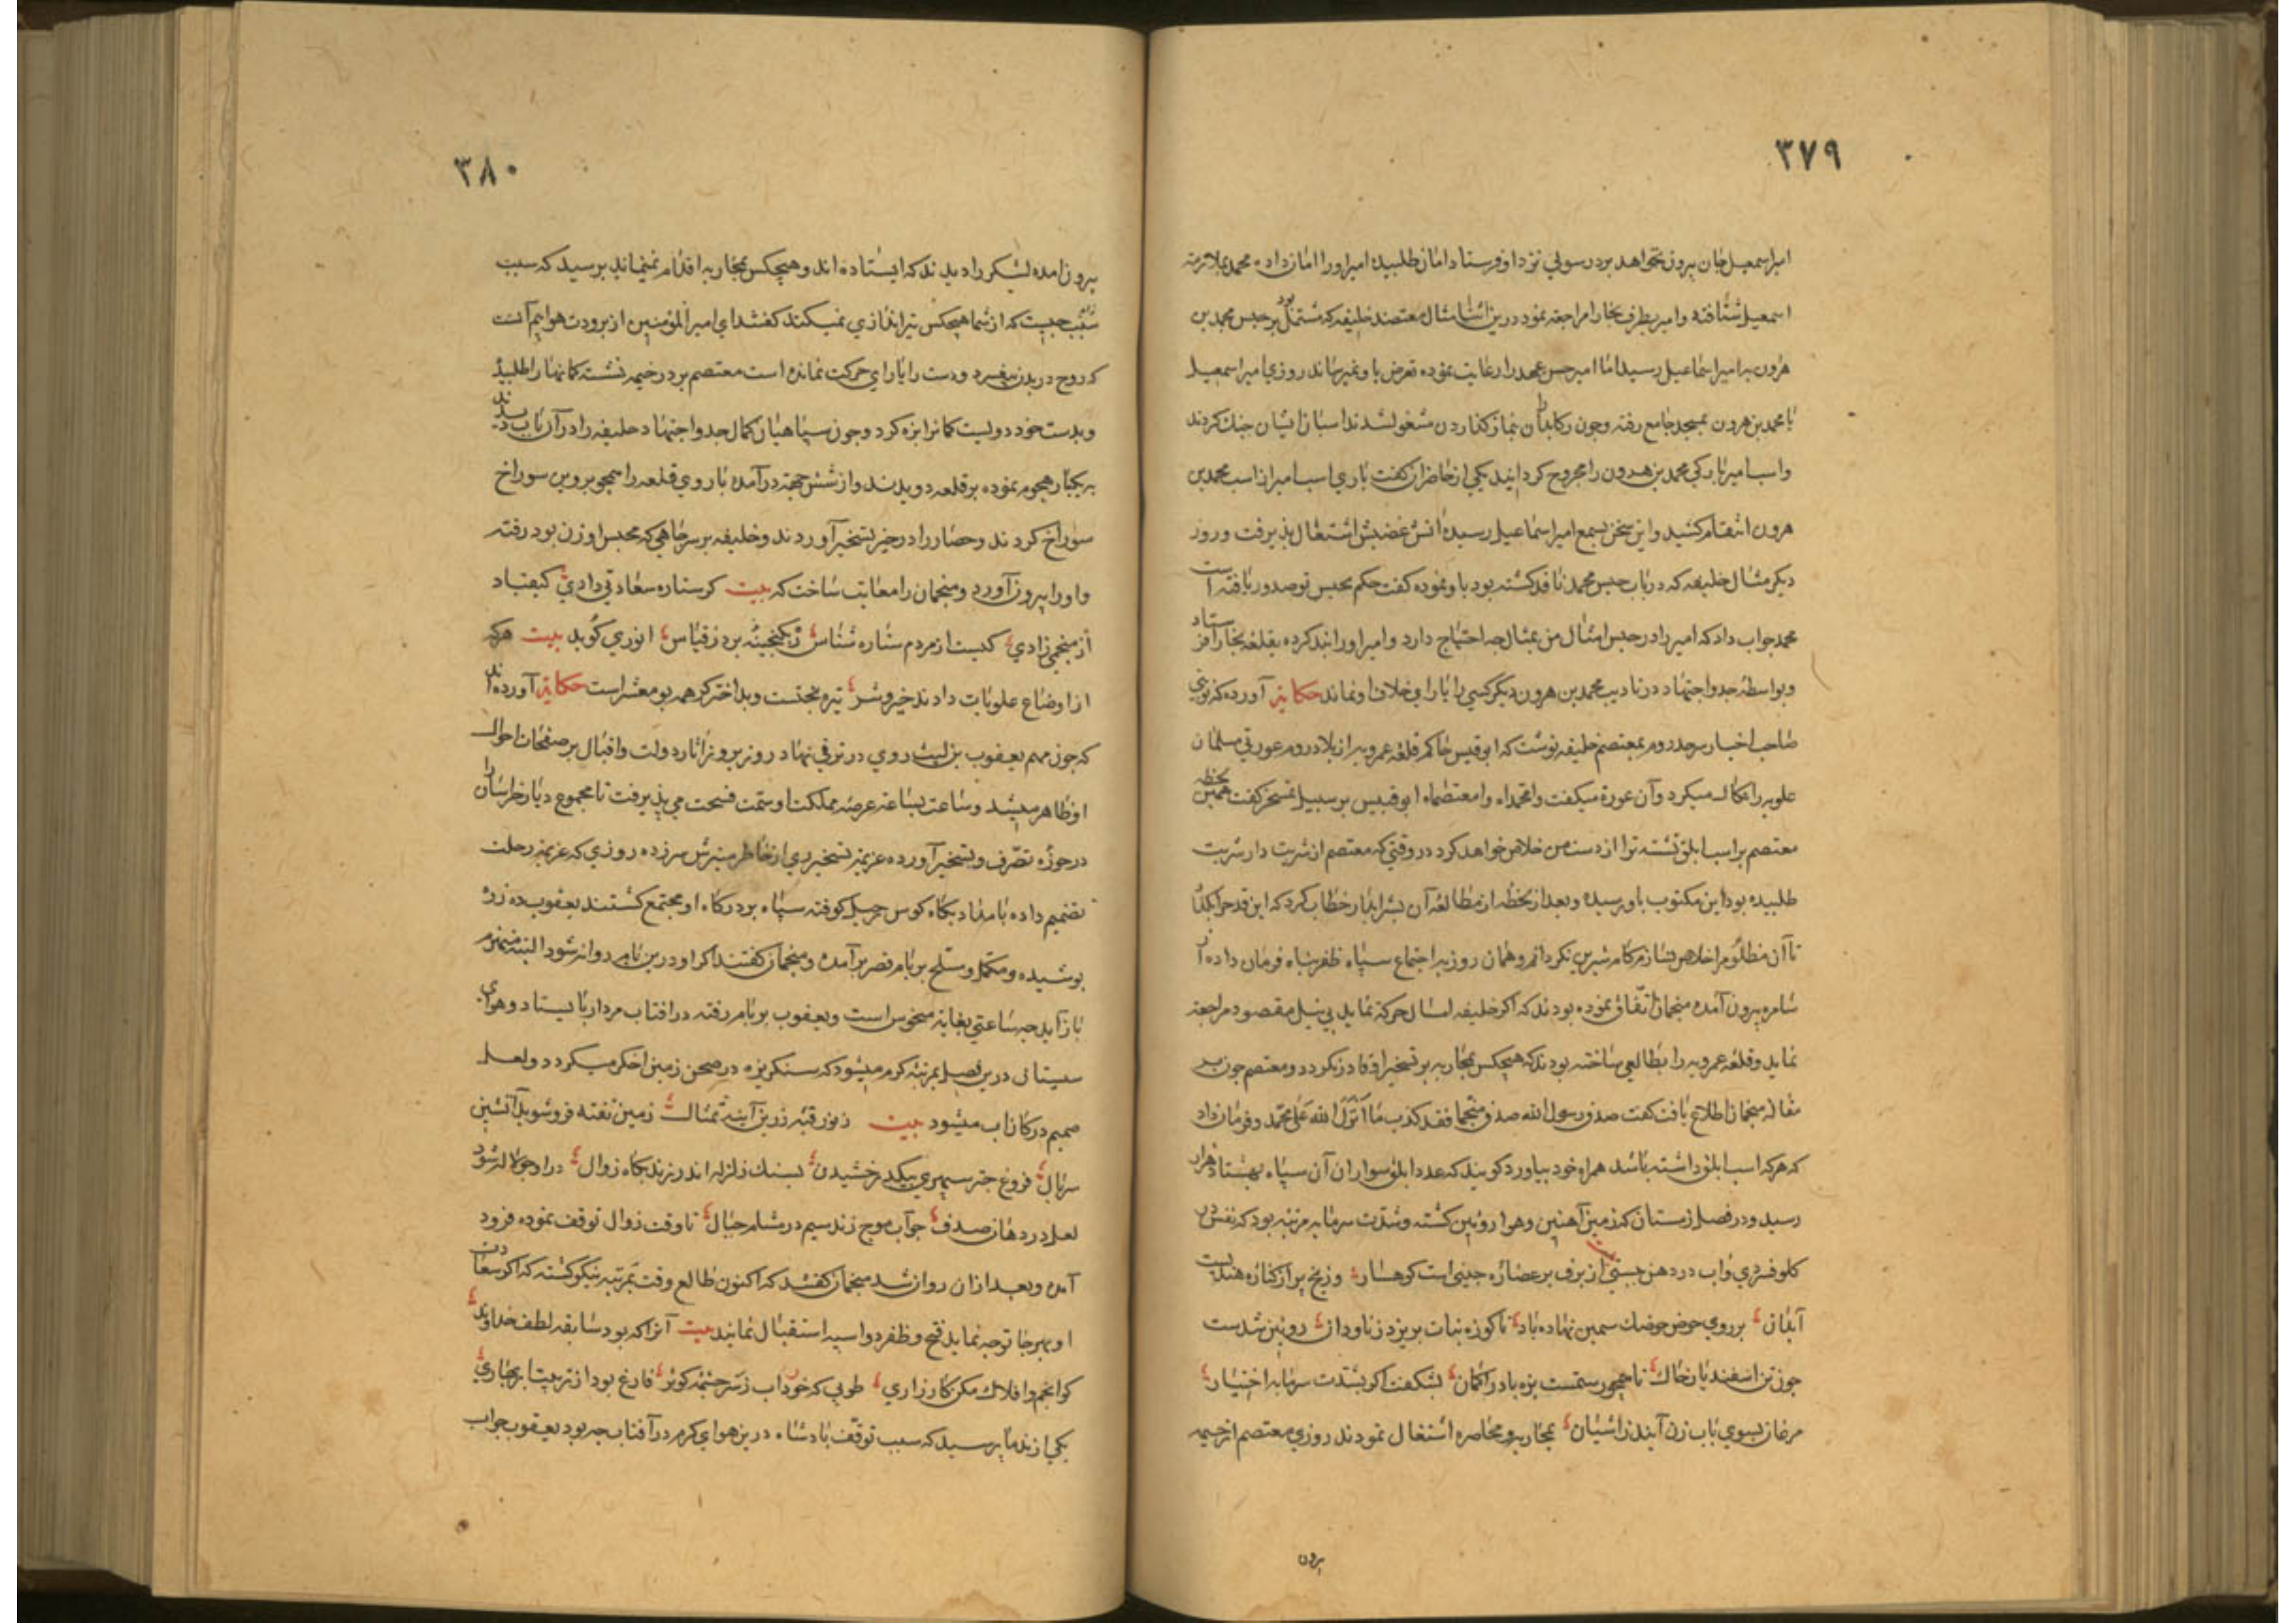 ۳۷۹
امیر اسمعیل جان بیرون نخواهد برد رسولی نزد او فرستاد امان طلبید امیر او را امان داده محمد بملازمت
اسمعیل شتافته و امیر بطرف بخارا مراجعه نمود درین اثنا مثال معتضد خلیفه که مشتمل بود بر حبس محمد بن
هرون بر امیر اسماعیل رسید اما امیر حسن عهد را رعایت نموده تعرض باو نمیرساند روزی امیر اسمعیل
با محمد بن هرون بمسجد جامع رفته وچون رکابداران نماز کذاردن مشغول شدند اسبان ایشان جنك کردند
واسب امیر بارکی محمد بن هرون را مجروح کردانید یکی از حاضران کفت باری اسب امیر از اسب محمد بن
هرون انتقام کشید و این سخن بسمع امیر اسماعیل رسیده آتش غضبش اشتعال پذیرفت و روز
دیکر مثال خلیفه که در باب حبس محمد نافذ کشته بود باو نموده کفت حکم بحبس تو صدور یافته است
محمد جواب داد که امیر را در حبس امثال من بمثال چه احتیاج دارد وامیر او را بند کرده بقلعه بخارا فرستاد
وبواسطه جد واجتهاد در تادیب محمد بن هرون دیکر کسی را یارای خلاف او نماند حکایة آورده که نوبتی
صاحب اخبار سرحد روم بمعتصم خلیفه نوشت که ابوقیس حاکم قلعه عمرویه از بلاد روم عورتی مسلمان
علویه را نکال میکرد وآن عورة میکفت وامحمداه وامعتصماه ابوقیس بر سبیل تمسخر کفت همین لحظه
معتصم بر اسب ابلق نشسته ترا از دست من خلاص خواهد کرد در وقتی که معتصم از شربت دار شربت
طلبیده بود این مکتوب باو رسید وبعد از لحظه از مطالعه آن بشرابدار خطاب کرد که این قدح را نکاهدار
تا آن مظلومه را خلاص نسازم کام شیرین نکردانم وهمان روز به اجتماع سپاه ظفر پناه فرمان داده از
سامره بیرون آمده منجمان اتفاق نموده بودند که اکر خلیفه امسال حرکة نماید بی نیل مقصود مراجعة
نماید وقلعه عمرویه را بطالعی ساخته بودند که هیچکس بمحاربه بر تسخیر او قادر نکردد ومعتصم چون بر
مقاله منجمان اطلاع یافت کفت صدق رسول الله من صدق منجما فقد کذب بما انزل الله علی محمد وفرمان داد
که هرکه اسب ابلق داشته باشد همراه خود بیاورد کویند که عدد ابلق سواران آن سپاه بهشتاد هزار
رسید ودر فصل زمستان که زمین آهنین وهوا رویین کشته وشدت سرما بمرتبه بود که نفس در
کلو فسردی وآب در دهن بستی از برف بر عصاره چینی است کوهسار وز یخ پر از کناره هندیست
آبدان بر روی حوض حوضك سیمین نهاده باد تا کوزه نبات بریزد ز ناودان رویین شدست
چون تن اسفندیار خاك تا همچو رستمست بزه باد را کمان نشکفت اکر بشدت سرما به اختیار
مرغان بسوی باب زن آیند ز آشیان بمحاربه ومحاصره اشتغال نمودند روزی معتصم از خیمه
بیرون
۳۸۰
بیرون آمده لشکر را دیدند که ایستاده اند وهیچکس بمحاربه اقدام نمینماید پرسید که سبب
چیست که از شما هیچکس تیراندازی نمیکند کفتند ای امیر المؤمنین از برودت هوا بیم آنست
که روح در بدن بیفسرد ودست را یارای حرکت نمانده است معتصم بر در خیمه نشسته کمانها را طلبید
وبدست خود دویست کمانرا بزه کرد وچون سپاهیان کمال جد واجتهاد خلیفه را در آن باب دیدند
به یکبار هجوم نموده بر قلعه دویدند واز شش جهة در آمده باروی قلعه را همچو پروین سوراخ
سوراخ کردند وحصار را در حیز تسخیر آوردند وخلیفه بر سر چاهی که محبس او زن بود رفته
واو را بیرون آورد ومنجمان را معاتب ساخت که بیت کر ستاره سعادتی دادی کیقباد
از منجمی زادی کیست از مردم ستاره شناس که کنجینه برد ز قیاس انوری کوید بیت هرکه
از اوضاع علویات داند خیر وشر تیره بختست وبد اختر کر همه بومعشر است حکایة آورده اند
که چون مهم یعقوب بن لیث روی در ترقی نهاد روز بروز آثار دولت واقبال بر صفحات احوال
او ظاهر میشد وساعت بساعة عرصه مملکت او سمت فسحت می پذیرفت تا مجموع دیار خراسان را
در حوزه تصرف وتسخیر آورده عزیمة تسخیر ری از خاطر منیرش سر زده روزی که عزیمة رحلت
تصمیم داده بامداد پکاه کوس رحیل کوفته سپاه بر درکاه او مجتمع کشتند یعقوب ده زره
پوشیده ومکمل ومسلح بر بام قصر بر آمده ومنجمان کفتند اکر او درین بام روانه شود البته منهزم
باز آید چه ساعتی بغایة منحوس است ویعقوب بر بام رفته در افتاب مردار بایستاد وهوای
سیستان درین فصل بمرتبه کرم میشود که سنکریزه در صحن زمین اخکر میکردد ولعل
صمیم در کان آب میشود بیت ز نور قبه زرین آینه تمثال زمین تفته فروشوید آتشین
سربال فروغ چتر سپهری بیکدرخشیدن بسنك زلزله اندر زند بکاه زوال در او چو لاله شود
لعل در دهان صدف چو آب موج زند سیم در مشام جبال تا وقت زوال توقف نموده فرود
آمد وبعد از آن روان شد منجمان کفتند که اکنون طالع وقت بمرتبه نیکو کشته که اکر سعادت
او بهر جا توجه نماید فتح وظفر دو اسبه استقبال نمایند بیت آنرا که بود سابقه لطف خداوند
کو انجم وافلاك مکن کارزاری طوبی که خورد آب ز سر چشمه کوثر فارغ بود از تربیت ابر بهاری
یکی از ندما پرسید که سبب توقف پادشاه درین هوای کرم در آفتاب چه بود یعقوب جواب